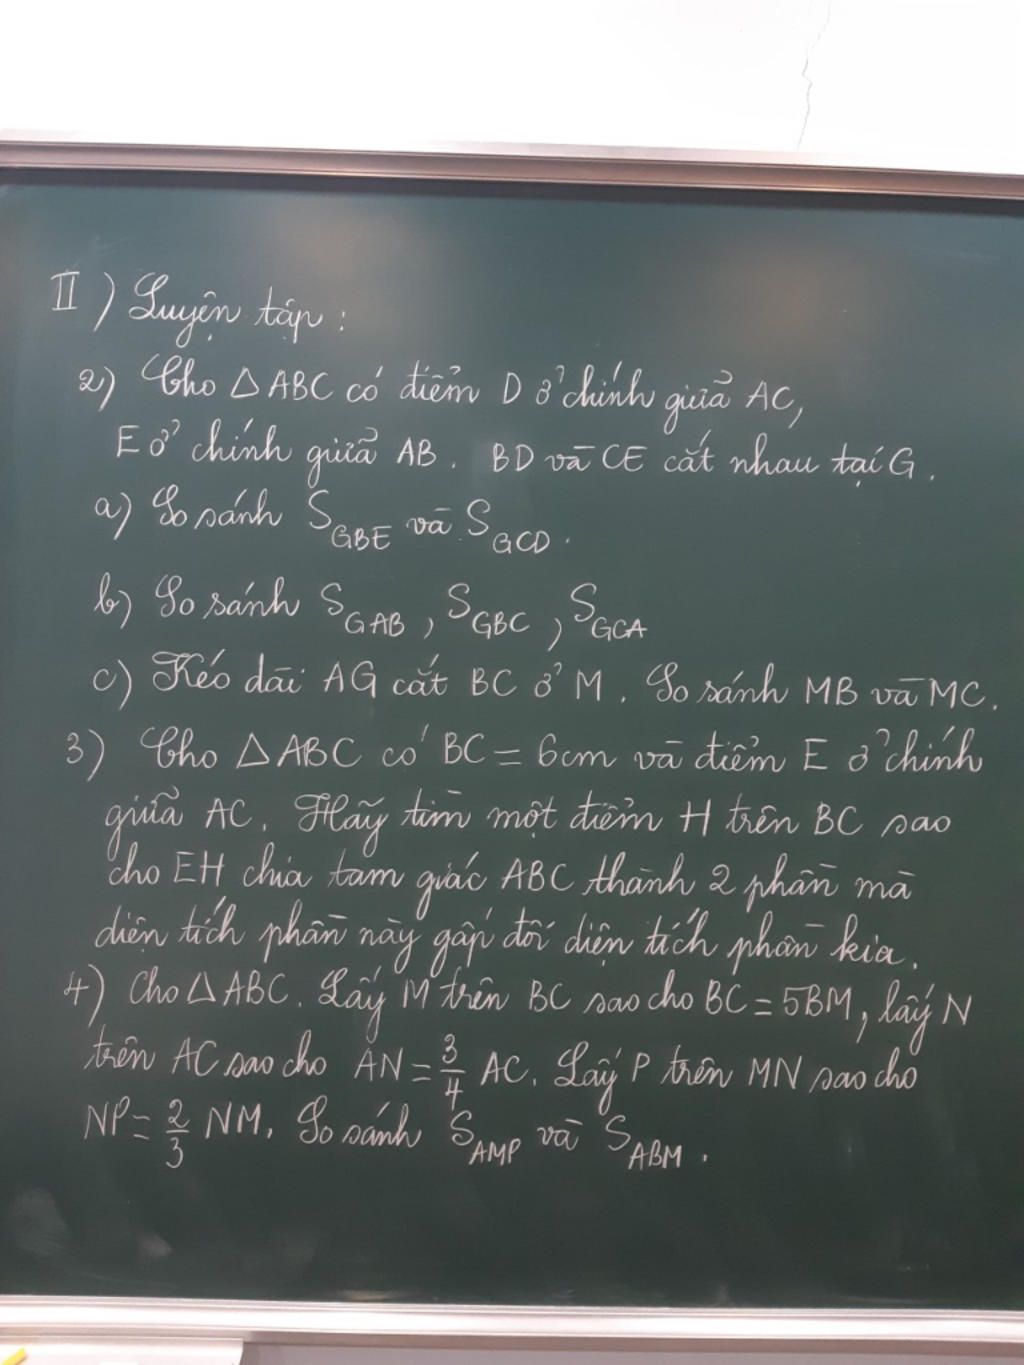 II) Luyện tập:
2) Cho △ABC có điểm D ở chính giữa AC,
E ở chính giữa AB. BD và CE cắt nhau tại G.
a) So sánh S_GBE và S_GCD.
b) So sánh S_GAB, S_GBC, S_GCA
c) Kéo dài AG cắt BC ở M. So sánh MB và MC.
3) Cho △ABC có BC = 6cm và điểm E ở chính
giữa AC. Hãy tìm một điểm H trên BC sao
cho EH chia tam giác ABC thành 2 phần mà
diện tích phần này gấp đôi diện tích phần kia.
4) Cho △ABC. Lấy M trên BC sao cho BC = 5BM, lấy N
trên AC sao cho AN = 3/4 AC. Lấy P trên MN sao cho
NP = 2/3 NM. So sánh S_AMP và S_ABM.